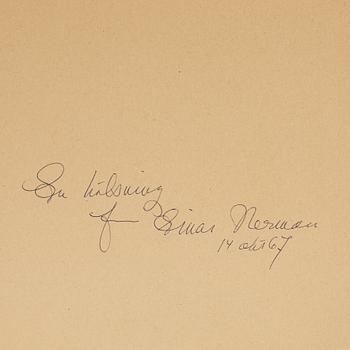 En hälsning
fr Einar Nerman
14 okt 67